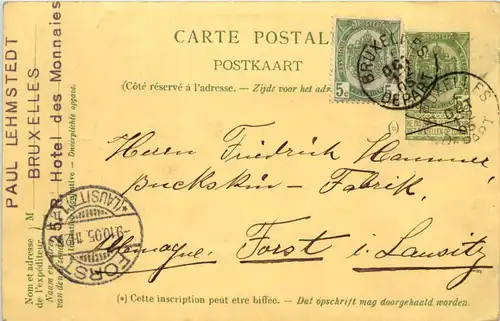 CARTE POSTALE
POSTKAART
(Côté réservé à l'adresse. – Zijde voor het adres
5c 5c
BRUXELLES
DÉPART
PAUL LEHMSTEDT
BRUXELLES
25, R. Hotel des Monnaies
Nom et adresse
de l'expéditeur.
Naam en
van den
(Indication facultative – Onverplichte opgave).
M
Herrn Friedrich Hammer
Buckskin – Fabrik,
Allemagne. Forst i. Lausitz
FORST
(LAUSITZ)
9.10.05.
(*) Cette inscription peut être biffée. – Dat opschrift mag doorgehaald worden.